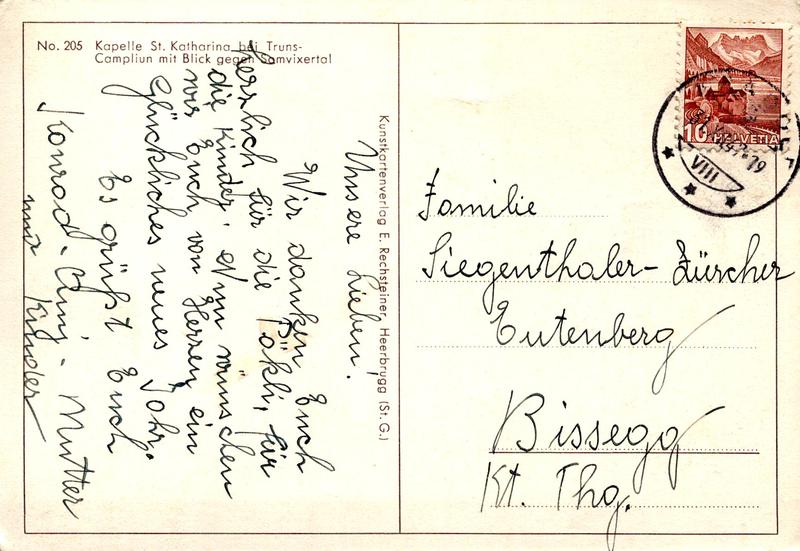 No. 205 Kapelle St. Katharina bei Truns-
Campliun mit Blick gegen Somvixertal
Kunstkartenverlag E. Rechsteiner, Heerbrugg (St. G.)
Unsere Lieben!
Wir danken Euch
herzlich für die Päkli, für
die Kinder. Nun wünschen
wir Euch von Herzen ein
Glückliches neues Jahr.
Es grüßt Euch
Konrad. Anny. Mutter
und Kinder
10 HELVETIA
VIII
Familie
Siegenthaler-Zürcher
Eutenberg
Bissegg
Kt. Thg.